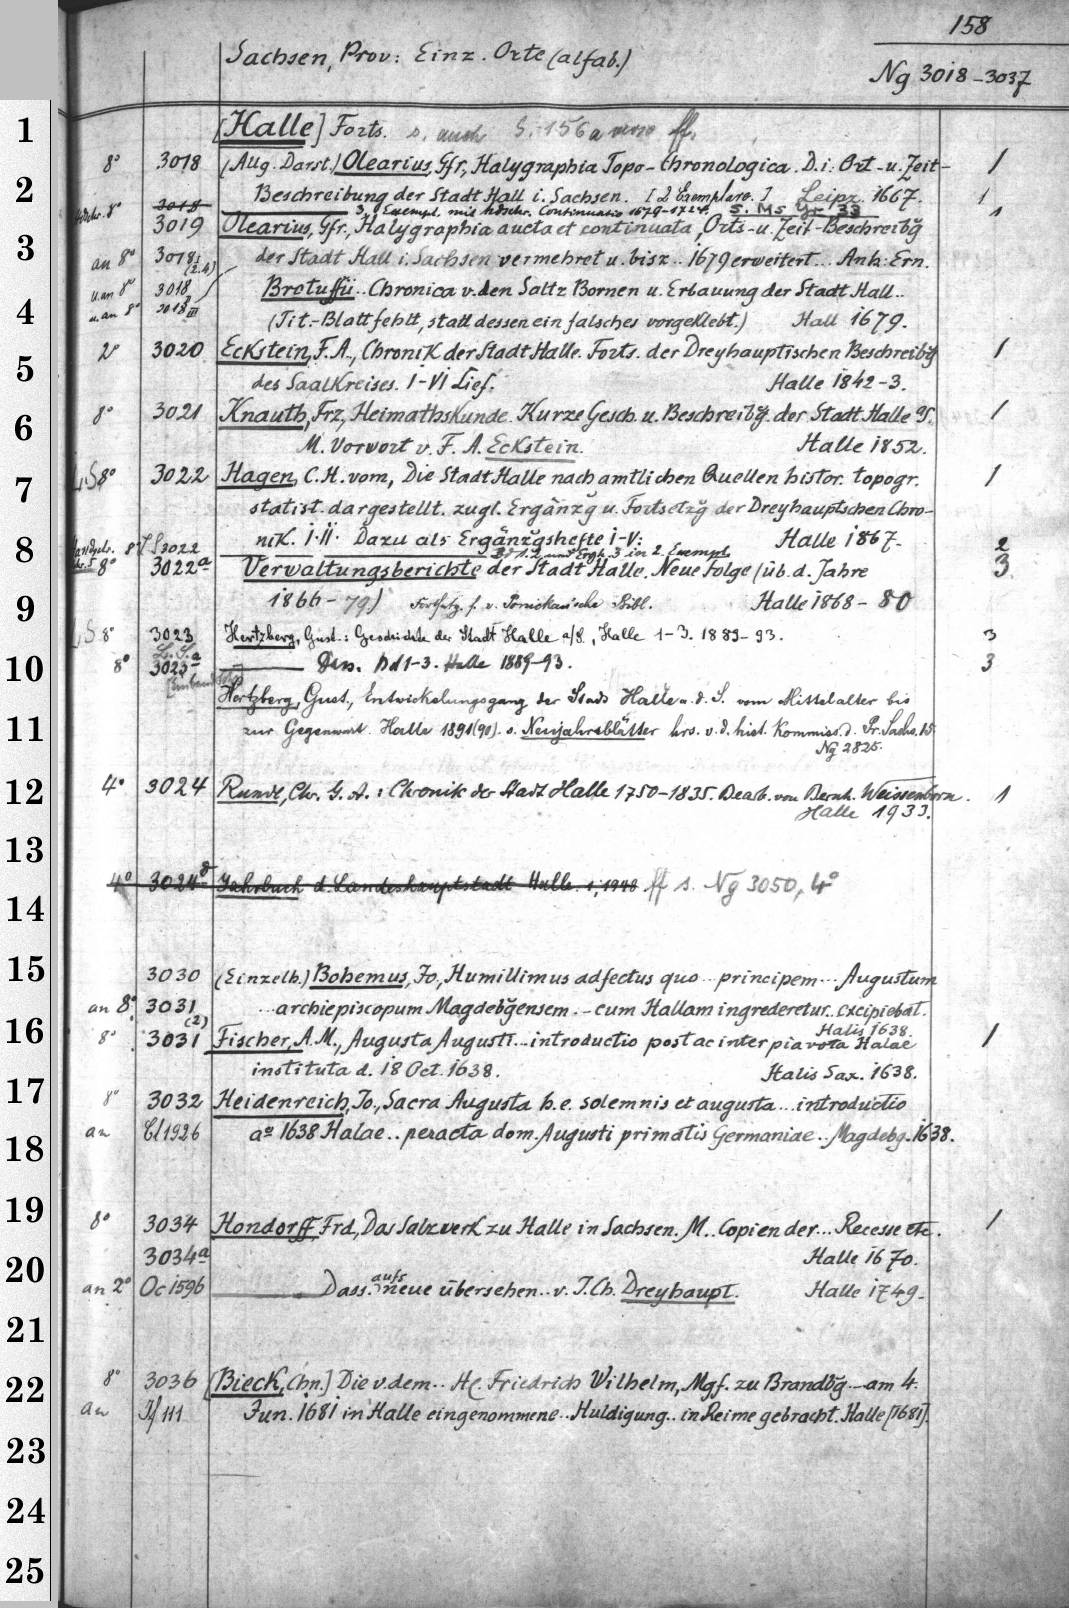 158
Sachsen, Prov: Einz. Orte (alfab.)
Ng 3018-3037
1 [Halle] Forts. s. auch S. 156a verso ff.
8° 3018 (Allg. Darst.) Olearius, Gfr, Halygraphia Topo-Chronologica. D.i: Ort-u. Zeit- 1
2 Beschreibung der Stadt Hall i. Sachsen. [2 Exemplare.] Leipz. 1667. 1
3018 3. Exempl. mit hdschr. Continuatio 1679-1724. s. Ms Yr 33
3019 Olearius, Gfr., Halygraphia aucta et continuata, Orts-u. Zeit-Beschreibg̃ 1
3 an 8° 3018 I (2.4) der Stadt Hall i. Sachsen vermehret u. bisz.. 1679 erweitert... Anh: Ern.
u. an 8° 3018 II Brotuffii.. Chronica v. den Saltz Bornen u. Erbauung der Stadt Hall..
4 u. an 8° 3018 III (Tit.-Blatt fehlt, statt dessen ein falsches vorgeklebt.) Hall 1679.
2° 3020 Eckstein, F.A., Chronik der Stadt Halle. Forts. der Dreyhauptischen Beschreibg̃ 1
5 des Saalkreises. I-VI Lief. Halle 1842-3.
6 8° 3021 Knauth, Frz, Heimathskunde. Kurze Gesch. u. Beschreibg̃. der Stadt Halle a/S. 1
M. Vorwort v. F. A. Eckstein. Halle 1852.
7 LS 8° 3022 Hagen, C.H. vom, Die Stadt Halle nach amtlichen Quellen histor. topogr. 1
statist. dargestellt. zugl. Ergänzg̃ u. Fortsetzg̃ der Dreyhauptschen Chro-
8 3022 nik. I.II. Dazu als Ergänzg̃shefte I-V. Halle 1867. 2
Bd 1.2 und Ergh. 3 in 2. Exempl.
8° 3022a Verwaltungsberichte der Stadt Halle. Neue Folge (üb. d. Jahre 3
9 1866-79) Fortsetzg. s. v. Ponickau'sche Bibl. Halle 1868-80
LS 8° 3023 Hertzberg, Gust.: Geschichte der Stadt Halle a/S., Halle 1-3. 1889-93. 3
10 8° 3023a Dass. Bd 1-3. Halle 1889-93. 3
Hertzberg, Gust., Entwickelungsgang der Stadt Halle a. d. S. vom Mittelalter bis
11 zur Gegenwart. Halle 1891(90). s. Neujahrsblätter hrs. v. d. hist. Kommiss. d. Pr. Sachs. 15.
Ng 2825.
12 4° 3024 Runde, Chr. G. A.: Chronik der Stadt Halle 1750-1835. Bearb. von Bernh. Weissenborn. 1
Halle 1933.
13
4° 3024d Jahrbuch d. Landeshauptstadt Halle. 1, 1948 ff s. Ng 3050, 4°
14
15 3030 (Einzelh.) Bohemus, Jo., Humillimus adfectus quo... principem... Augustum
an 8° 3031 (2) ...archiepiscopum Magdebg̃ensem.. cum Hallam ingrederetur.. excipiebat.
Halis 1638.
16 8° 3031 Fischer, A.M., Augusta Augusti... introductio post ac inter pia vota Halae 1
instituta d. 18 Oct. 1638. Halis Sax. 1638.
17 8° 3032 Heidenreich, Jo., Sacra Augusta h.e. solemnis et augusta... introductio
18 an Cl 1926 a° 1638 Halae.. peracta dom. Augusti primatis Germaniae.. Magdebg. 1638.
19 8° 3034 Hondorff, Frd., Das Salzwerk zu Halle in Sachsen. M.. Copien der... Recesse etc. 1
3034a Halle 1670.
20 an 2° Oc 1596 Dass. aufs neue übersehen.. v. J. Ch. Dreyhaupt. Halle 1749.
21
22 8° 3036 [Bieck, Chn.] Die v. dem.. H. Friedrich Wilhelm, Mgf. zu Brandbg̃.. am 4.
an If 111 Jun. 1681 in Halle eingenommene.. Huldigung.. in Reime gebracht. Halle [1681].
23
24
25